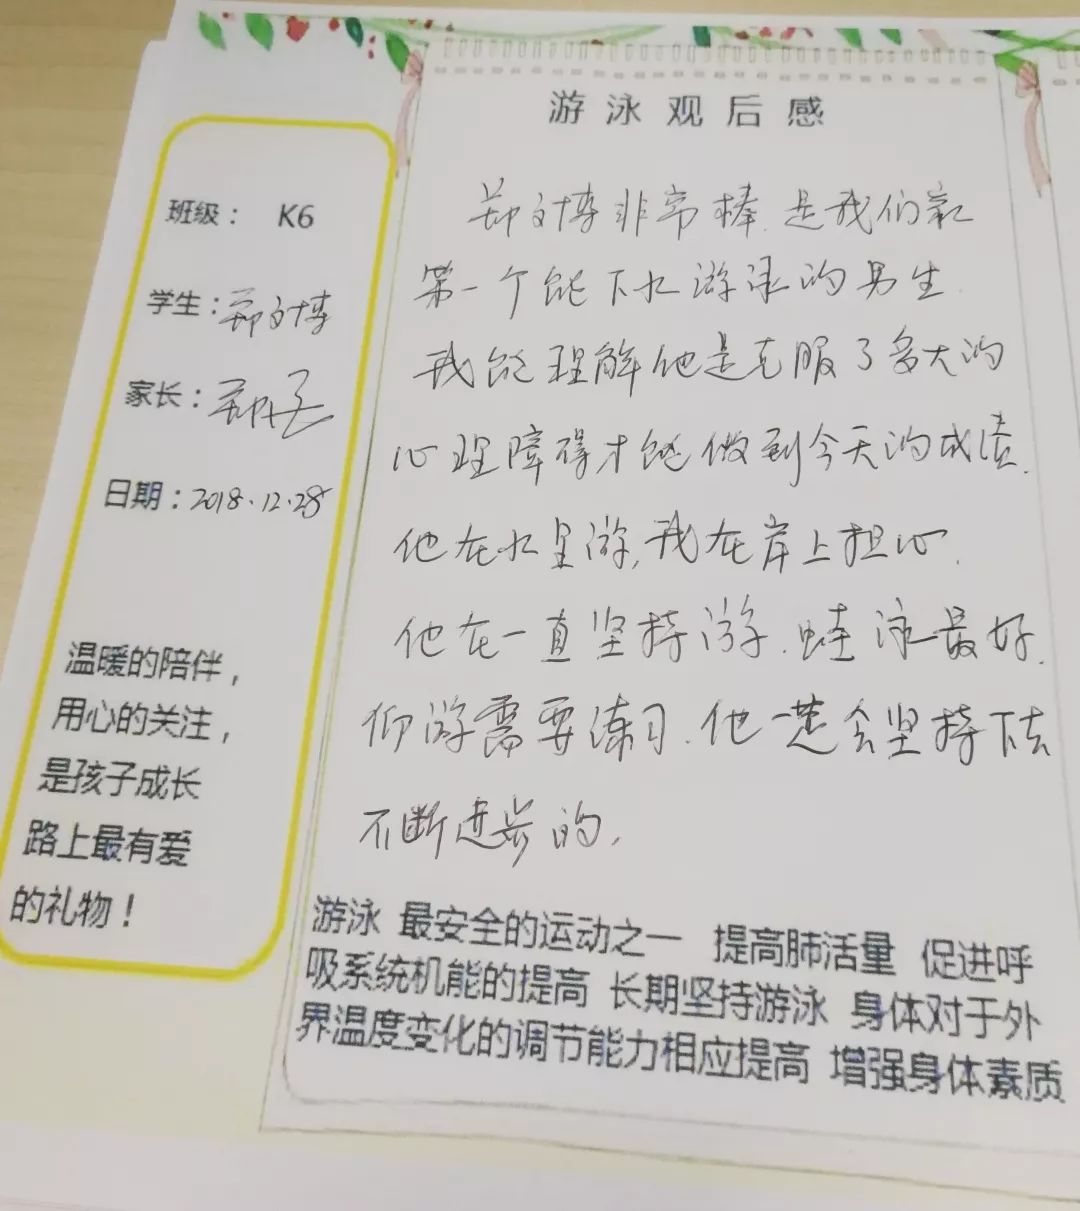 游泳观后感
班级： K6
学生：郑文博
家长：郑
日期：2018.12.28
温暖的陪伴，
用心的关注，
是孩子成长
路上最有爱
的礼物！
郑文博非常棒.是我们家
第一个能下水游泳的男生.
我能理解他是克服了多大的
心理障碍才能做到今天的成绩.
他在水里游,我在岸上担心.
他在一直坚持游.蛙泳最好.
仰游需要练习.他一定会坚持下去
不断进步的.
游泳 最安全的运动之一 提高肺活量 促进呼
吸系统机能的提高 长期坚持游泳 身体对于外
界温度变化的调节能力相应提高 增强身体素质